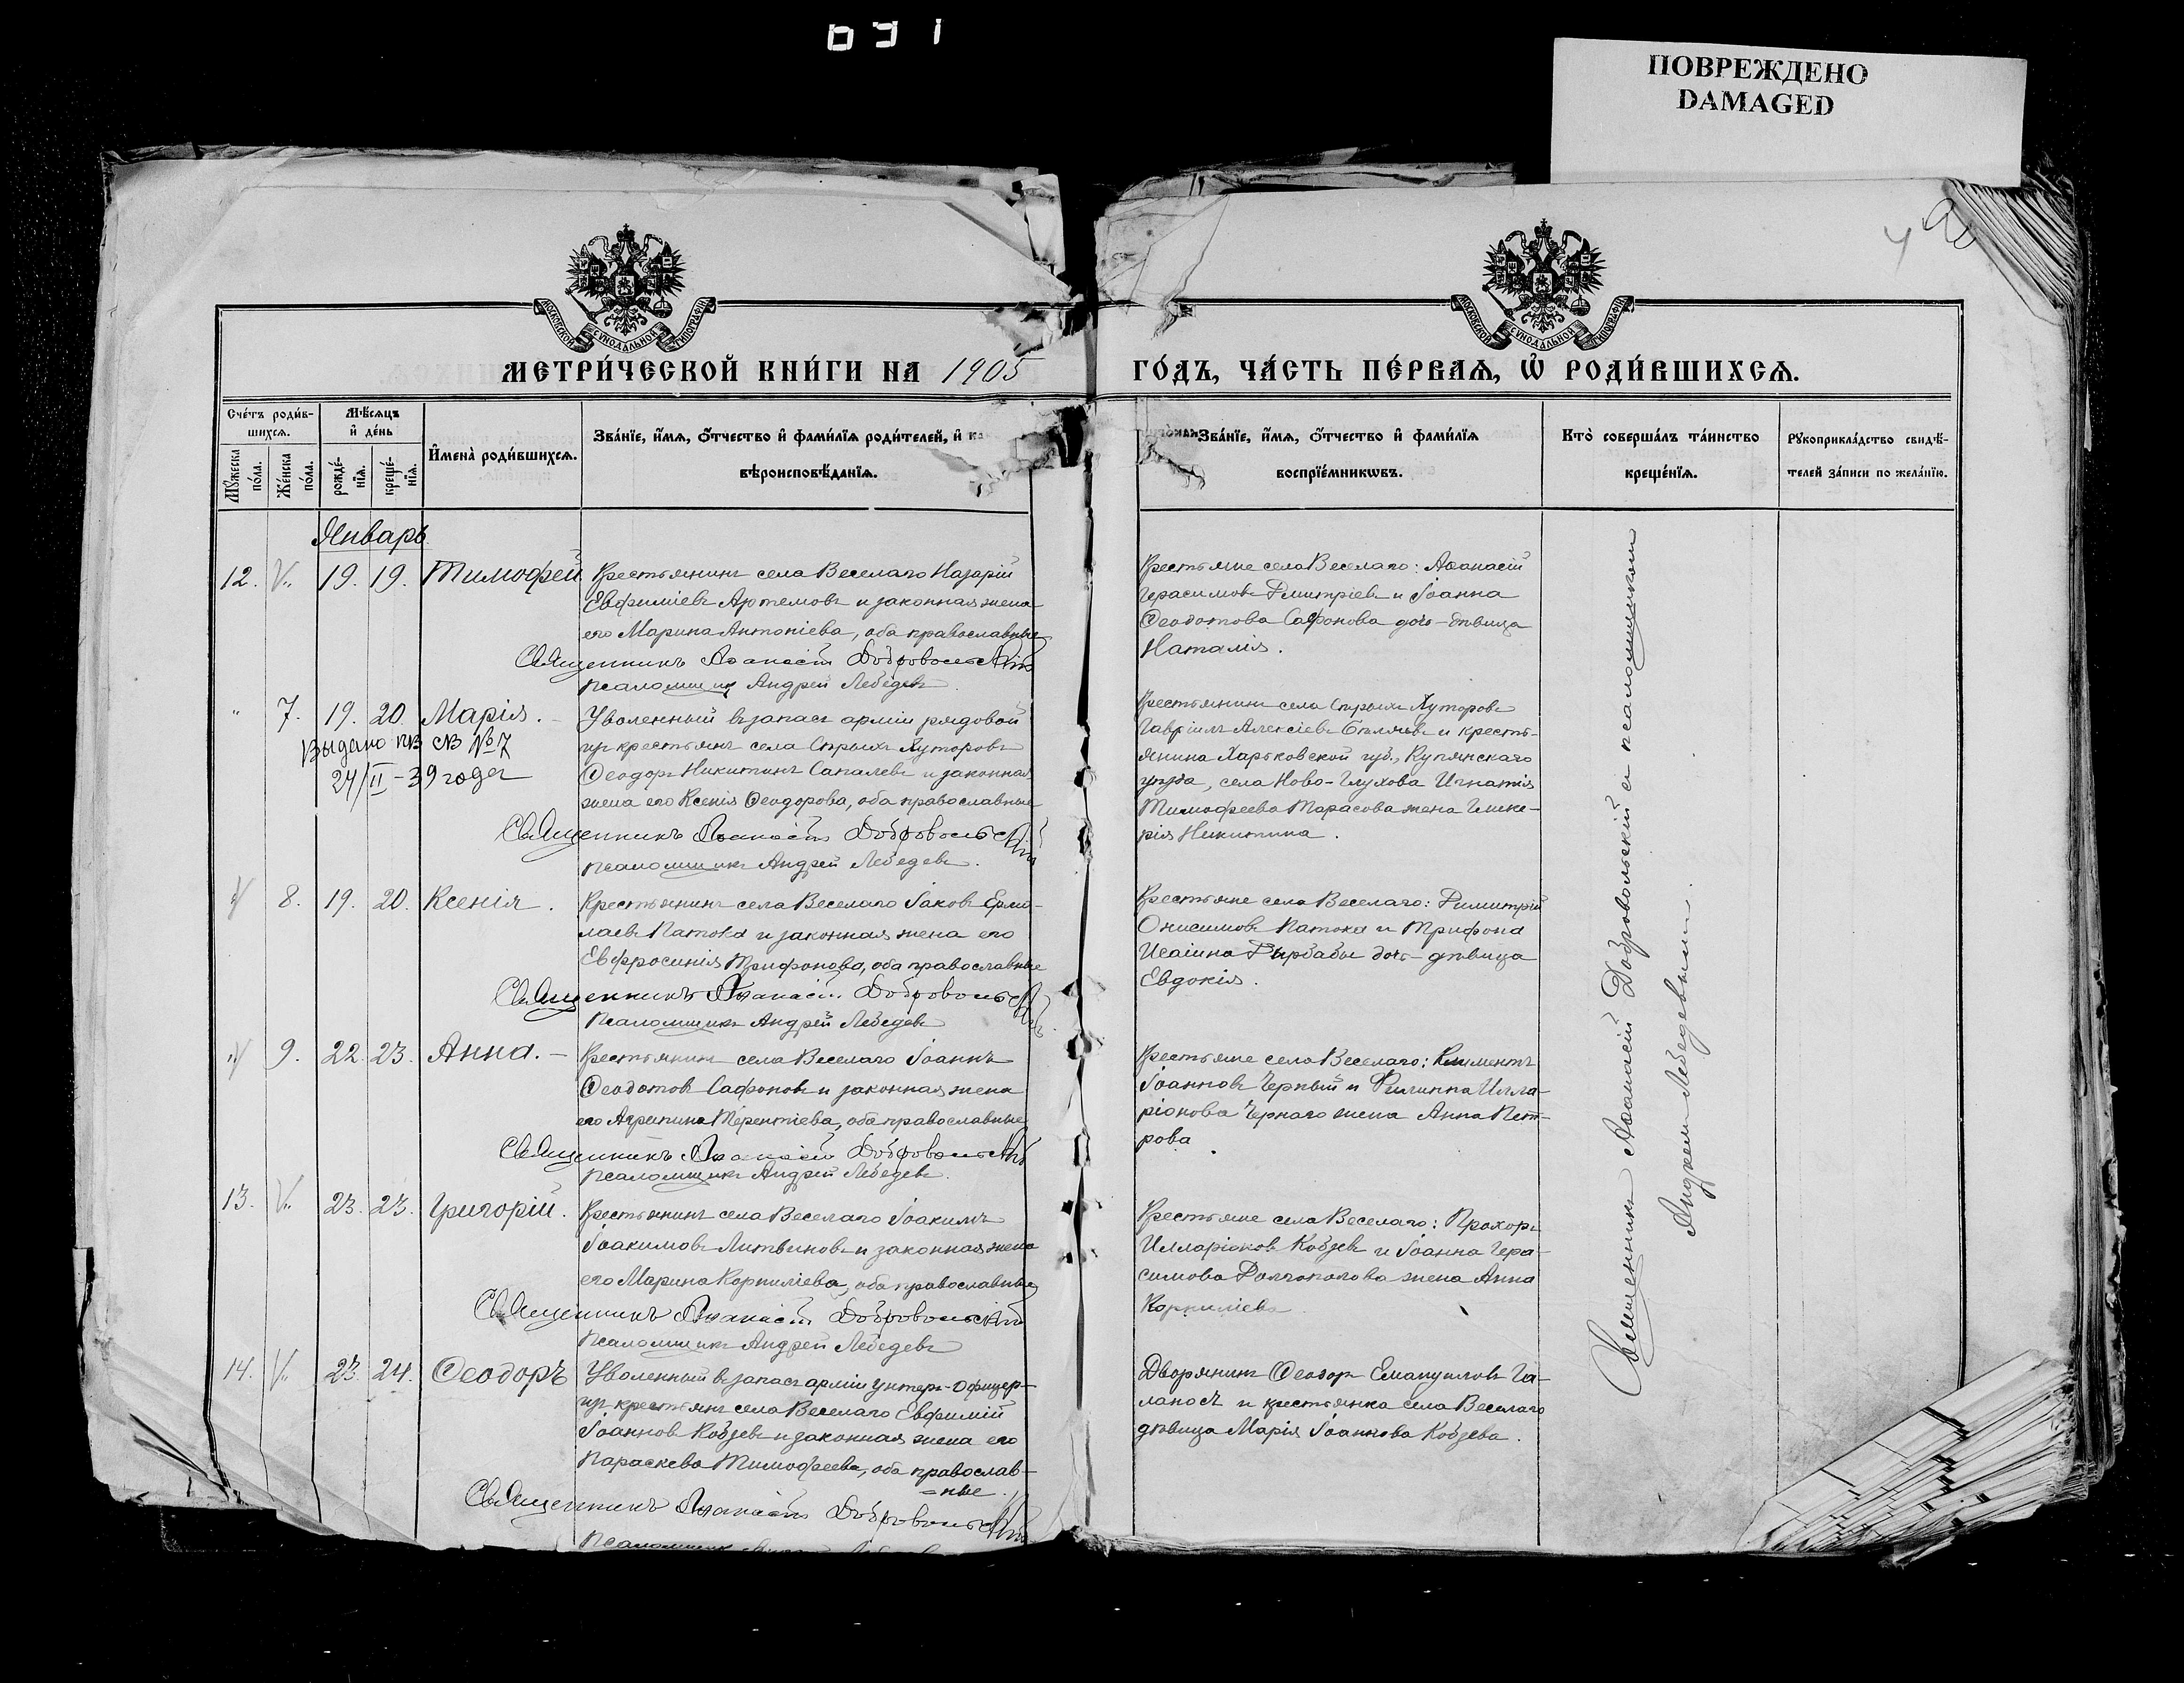 ПОВРЕЖДЕНО
DAMAGED
МОСКОВСКОЙ СѴНОДАЛЬНОЙ ТИПОГРАФІИ
МОСКОВСКОЙ СѴНОДАЛЬНОЙ ТИПОГРАФІИ
МЕТРИ́ЧЕСКОЙ КНИ́ГИ НА 1905
ГО́ДЪ, ЧА́СТЬ ПЕ́РВАЯ, Ѡ РОДИ́ВШИХСЯ.
Сче́тъ роди́в-
шихся.
Мѣ́сяцъ
и҆ де́нь
Мꙋ́жеска
по́ла.
Же́нска
по́ла.
рожде́-
нїя.
креще́-
нїя.
И҆мена̀ роди́вшихся.
Зва́нїе, и҆́мя, ѻ҆́тчество и҆ фами́лїя роди́телей, и҆
вѣроисповѣ́данїя.
Зва́нїе, и҆́мя, ѻ҆́тчество и҆ фами́лїя
воспрїе́мникѡвъ.
Кто̀ соверша́лъ та́инство
креще́нїя.
Рꙋкоприкла́дство свидѣ́-
телей за́писи по жела́нїю.
Январь
12. 19. 19. Тимофей
Крестьянинъ села Веселаго Назарій
Евфиміевъ Артемовъ и законная жена
его Марина Антоніева, оба православные
Священникъ Аѳанасій Добровольскій
Псаломщикъ Андрей Лебедевъ.
Крестьяне села Веселаго: Аѳанасій
Герасимовъ Дмитріевъ и Іоанна
Ѳеодотова Сафонова дочь-дѣвица
Наталія.
" 7. 19. 20. Марія.
Выдано
св №7
24/II-39 года
Уволенный въ запасъ арміи рядовой
изъ крестьянъ села Старыхъ Хуторовъ
Ѳеодоръ Никитинъ Сапалевъ и законная
жена его Ксенія Ѳеодорова, оба православные
Священникъ Аѳанасій Добровольскій
Псаломщикъ Андрей Лебедевъ.
Крестьянинъ села Хуторовъ
Гавріилъ Алексіевъ и кресть-
янина Харьковской губ., Купянскаго
уѣзда, села Ново-Глухова Игнатія
Тимофеева Тарасова жена Глике-
рія Никитина.
8. 19. 20. Ксенія.
Крестьянинъ села Веселаго Іаковъ Ермо-
лаевъ Патока и законная жена его
Евфросинія Трифонова, оба православные
Священникъ Аѳанасій Добровольскій
Псаломщикъ Андрей Лебедевъ
Крестьяне села Веселаго: Димитрій
Онисимовъ Патока и Трифона
Исаіина Дырбабы дочь-дѣвица
Евдокія.
9. 22. 23. Анна.
Крестьянинъ села Веселаго Іоаннъ
Ѳеодотовъ Сафоновъ и законная жена
его Агрипина Терентіева, оба православные
Священникъ Аѳанасій Добровольскій
Псаломщикъ Андрей Лебедевъ.
Крестьяне села Веселаго: Климентъ
Іоанновъ Черный и Филиппа Илла-
ріонова Чернаго жена Анна Пет-
рова.
13. 23. 23. Григорій.
Крестьянинъ села Веселаго Іоакимъ
Іоакимовъ Литвиновъ и законная жена
его Марина Корниліева, оба православные
Священникъ Аѳанасій Добровольскій
Псаломщикъ Андрей Лебедевъ
Крестьяне села Веселаго: Прохоръ
Илларіоновъ Кобзевъ и Іоанна Гера-
симова Долгополова жена Анна
Корниліева
14. 23. 24. Ѳеодоръ
Уволенный въ запасъ арміи унтеръ-офицеръ
изъ крестьянъ села Веселаго Евфимій
Іоанновъ Кобзевъ и законная жена его
Параскева Тимофеева, оба православ-
-ные.
Священникъ Аѳанасій Добровольскій
Псаломщикъ Андрей Лебедевъ
Дворянинъ Ѳеодоръ Емануиловъ Га-
ланосъ и крестьянка села Веселаго
дѣвица Марія Іоаннова Кобзева.
Священникъ Аѳанасій Добровольскій съ псаломщикомъ
Андреемъ Лебедевымъ.